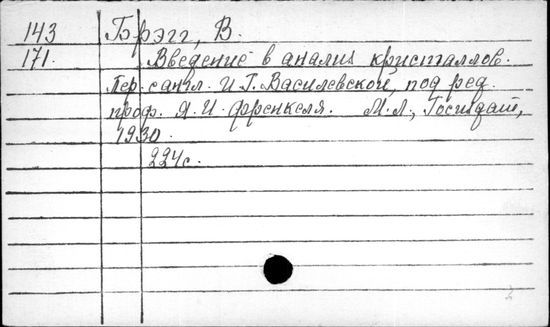 143 Брэгг, В.
171. Введение в анализ кристаллов.
Пер. с англ. И.Г. Василевской, под ред.
проф. Я.И. Френкеля. М.-Л., Госиздат,
1930.
224с.
2